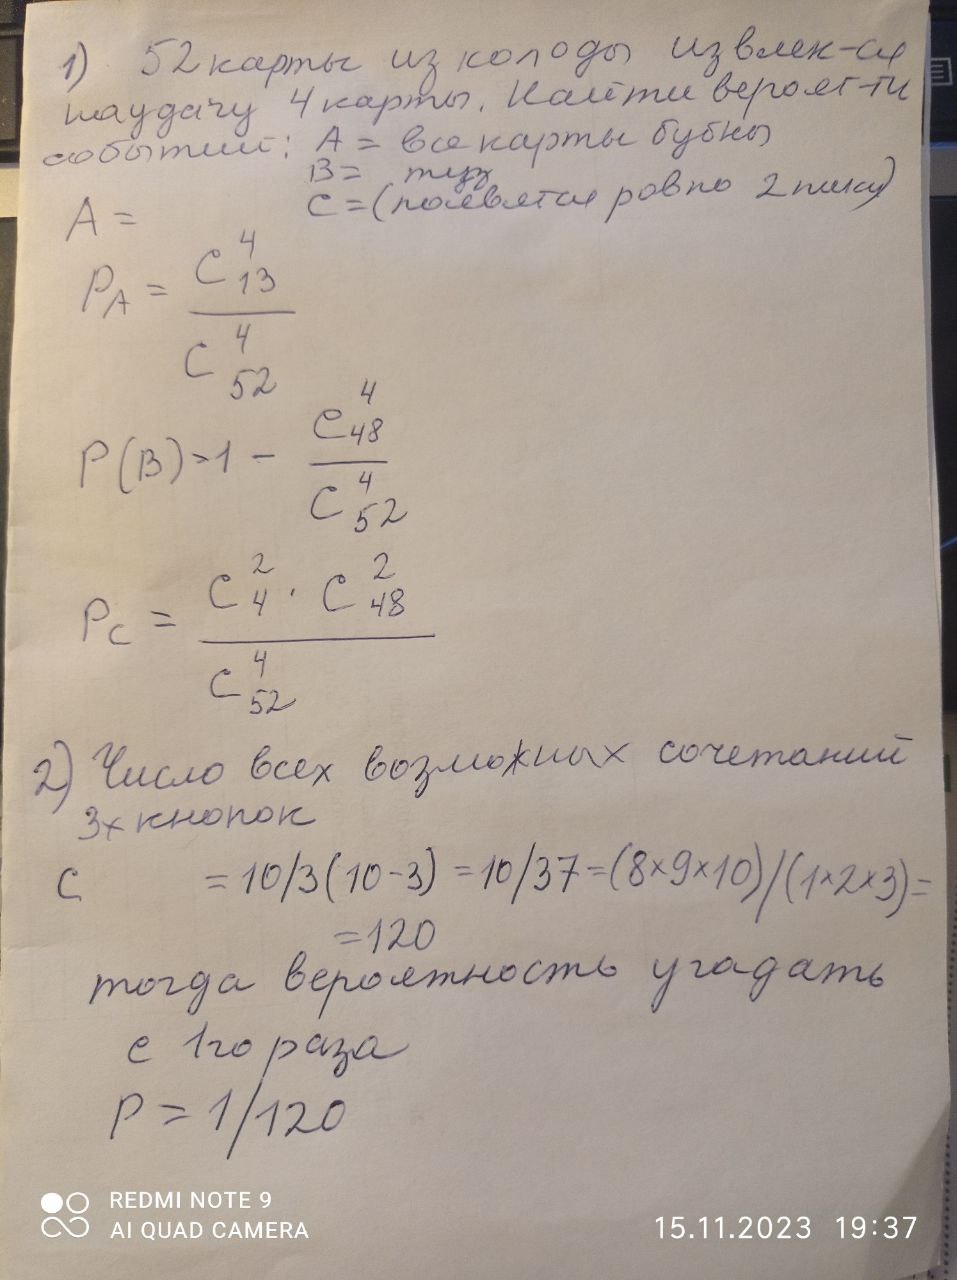 1) 52 карты из колоды извлек-ся
наудачу 4 карты. Найти вероят-ти
событий: A = все карты бубны
B = туз
C = (появятся ровно 2 пики)
A =
P_A = C_13^4 / C_52^4
P(B) = 1 - C_48^4 / C_52^4
P_C = C_4^2 · C_48^2 / C_52^4
2) Число всех возможных сочетаний
3х кнопок
C = 10/3(10-3) = 10/37 = (8×9×10)/(1×2×3) =
= 120
тогда вероятность угадать
с 1го раза
P = 1/120
REDMI NOTE 9
AI QUAD CAMERA
15.11.2023 19:37